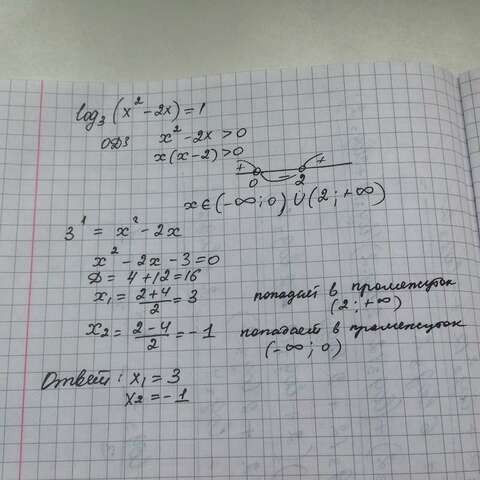 log₃(x² - 2x) = 1
ОДЗ x² - 2x > 0
x(x - 2) > 0
+ - +
0 2
x ∈ (-∞; 0) ∪ (2; +∞)
3¹ = x² - 2x
x² - 2x - 3 = 0
D = 4 + 12 = 16
x₁ = (2+4)/2 = 3 попадает в промежуток (2; +∞)
x₂ = (2-4)/2 = -1 попадает в промежуток (-∞; 0)
Ответ: x₁ = 3
x₂ = -1